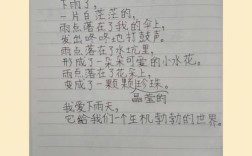 下雨了，
一片白茫茫的，
雨点落在了我的伞上，
发出咚咚，也打鼓声。
雨点落在了水坑里，
形成了一朵朵可爱的小水花。
雨点落在了花朵上，
变成了一颗颗珍珠。
晶莹的
我爱下雨天，
它给我们一个生机勃勃的世界。